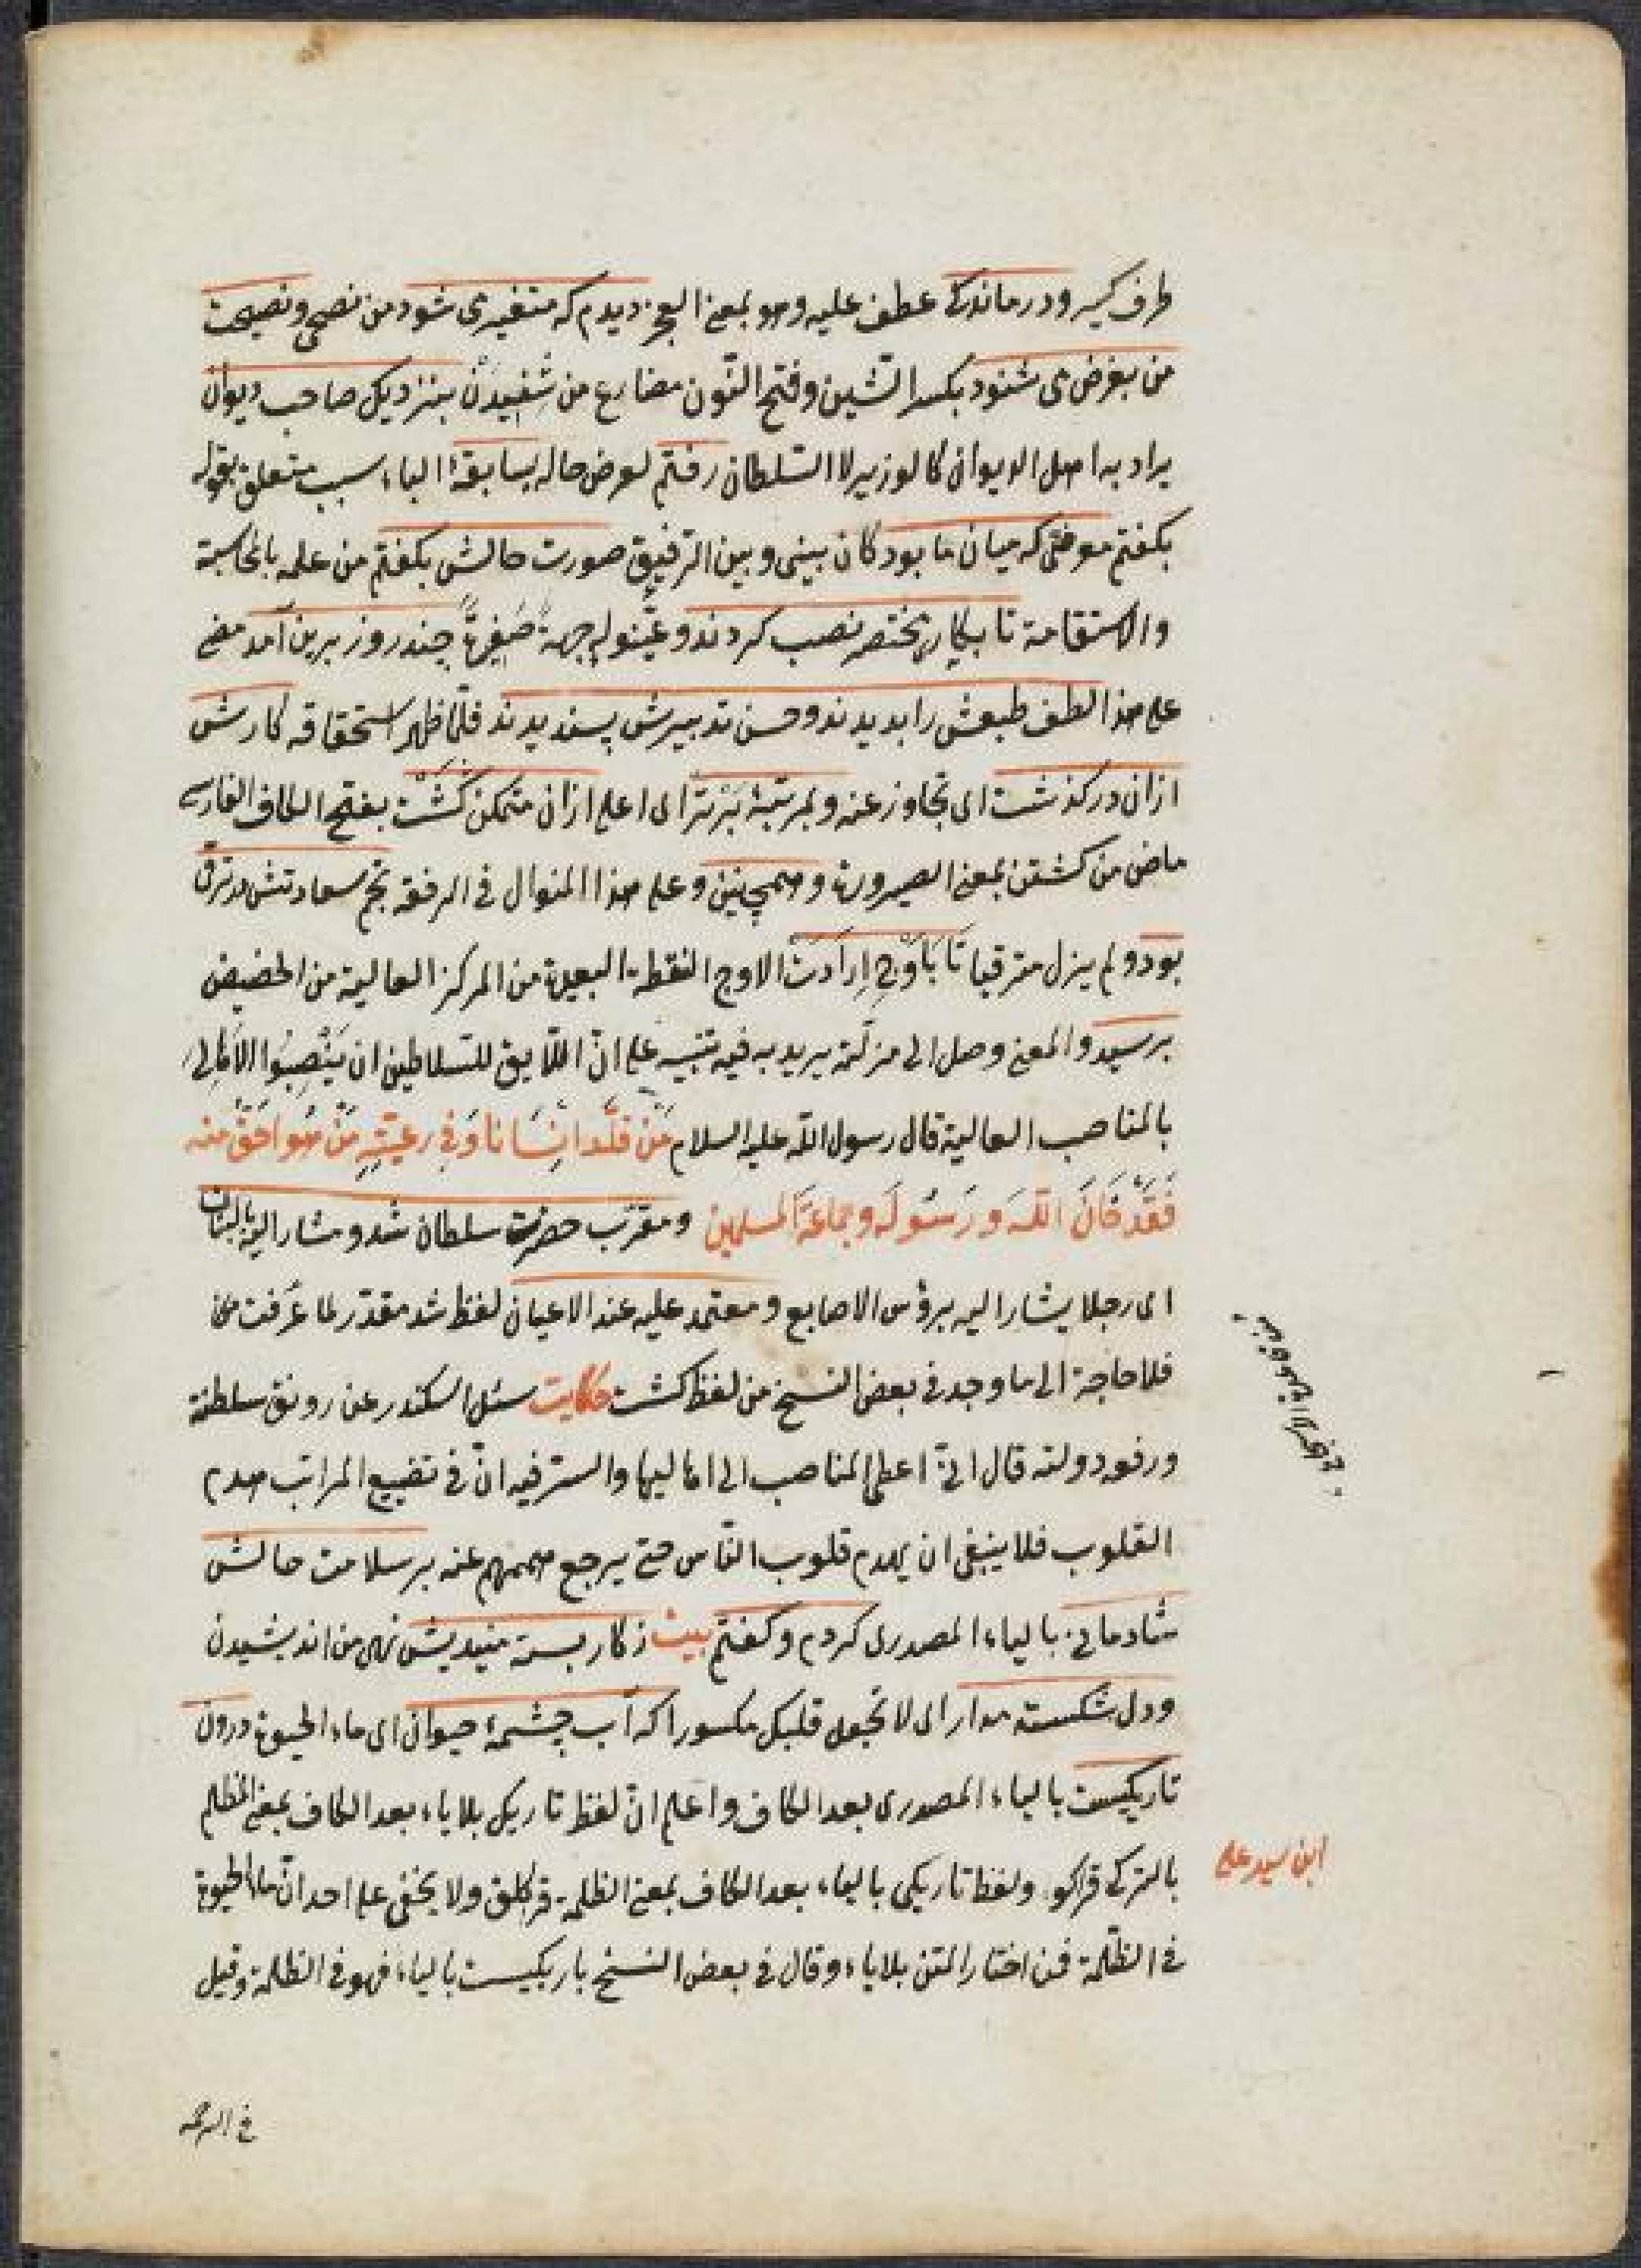 طرف كیر و درماندن عطف علیه وهو بمعنى العجز دیدم كه متغیر می شود من نصحی و نصیحت
من بغرض می شنود بكسر الشّین وفتح النّون مضارع من شنیدن بنزدیك صاحب دیوان
یراد به اهل الدیوان كالوزیر لا السّلطان رفتم لعرض حاله بسابقهٔ الباء سبب متعلق بقوله
بكفتم معرفتی كه میان ما بود كان بینی وبین الرفیق صورت حالش بكفتم من علمه بالمحاسبة
والاستقامة تا بكاری مختصر نصب كردند وعیّنوا له جهةً صَغِیرةً چند روز برین آمد مضى
على هذا لطف طبعش را بدیدند وحسن تدبیرش پسندیدند فلمّا ظهر استحقاقه كارش
ازان دركذشت اى تجاوز عنه وبمرتبهٔ بَرْتَر اى اعلى ازان متمكن كَشْت بفتح الكاف الفارسی
ماض من كشتن بمعنى الصیرورة و همچنین وعلى هذا المنوال فى الرفعة نجم سعادتش در ترقّى
بود ولم یزل مترقیا تَا بَاَوْجِ اِرَادَتْ الاوج النقطة البعیدة من المركز العالیة من الحضیض
برسید والمعنى وصل الى منزلة یرید به فیه تنبیه على انّ اللّایق للسّلاطین ان یَنْصِبُوا الاَهالی
بالمناصب العالیة قال رسول اللّه علیه السلام مَنْ قَلَّدَ اِنْسَانًا وَفِى رعیّتِهِ مَنْ هُو اَحَقّ منه
فَقَدْ خَانَ اللّهَ وَرَسُولَه وجماعَةَ المسلمین ومقرّب حضرت سلطان شد و مشار الیه بالبنان
اى رجلا یشار الیه برؤس الاصابع و معتمد علیه عند الاعیان لفظ شد مقدّر لما عرفت
فلا حاجة الى ما وجد فى بعض النسخ من لفظ كشت حكایت سئل اسكندر عن رونق سلطنة
ورفعة دولته قال انّى اعطى المناصب الى اهالیها والسّر فیه انّ فى تضییع المراتب هدم
القلوب فلا ینبغى ان یهدم قلوب النّاس حتى یرجع هممهم عنه بر سلامت حالش
شادمانى بالیاء المصدرى كردم وكفتم بیت ز كار بسته میندیش نهى من اندیشیدن
ودل شكسته مدار اى لا تجعل قلبك مكسورا كه آب چشمهٔ حیوان اى ماء الحیوة درون
تاریكیست بالیاء المصدرى بعد الكاف واعلم انّ لفظ تاریك بلا یاء بعد الكاف بمعنى المظلم
بالتركى قراكو ولفظ تاریكى بالیاء بعد الكاف بمعنى الظلمة قراكلق ولا یخفى على احد انّ ماء الحیوة
فى الظّلمة فمن اختار المتن بلا یاء وقال فى بعض النسخ تاریكیست بالیاء فهو فى الظلمة وقیل
ابن سید على